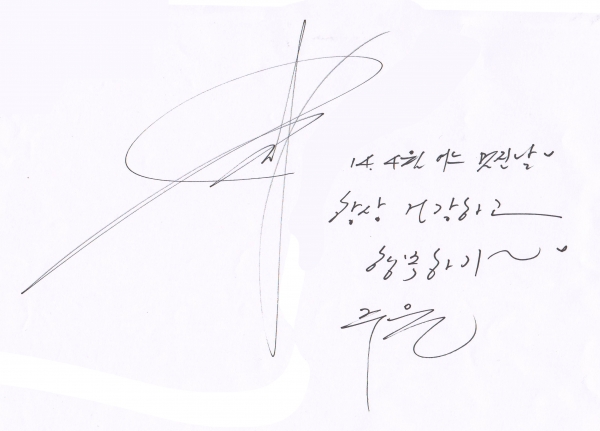 14. 4월 어느 멋진날
항상 건강하고
행복하기~
주은